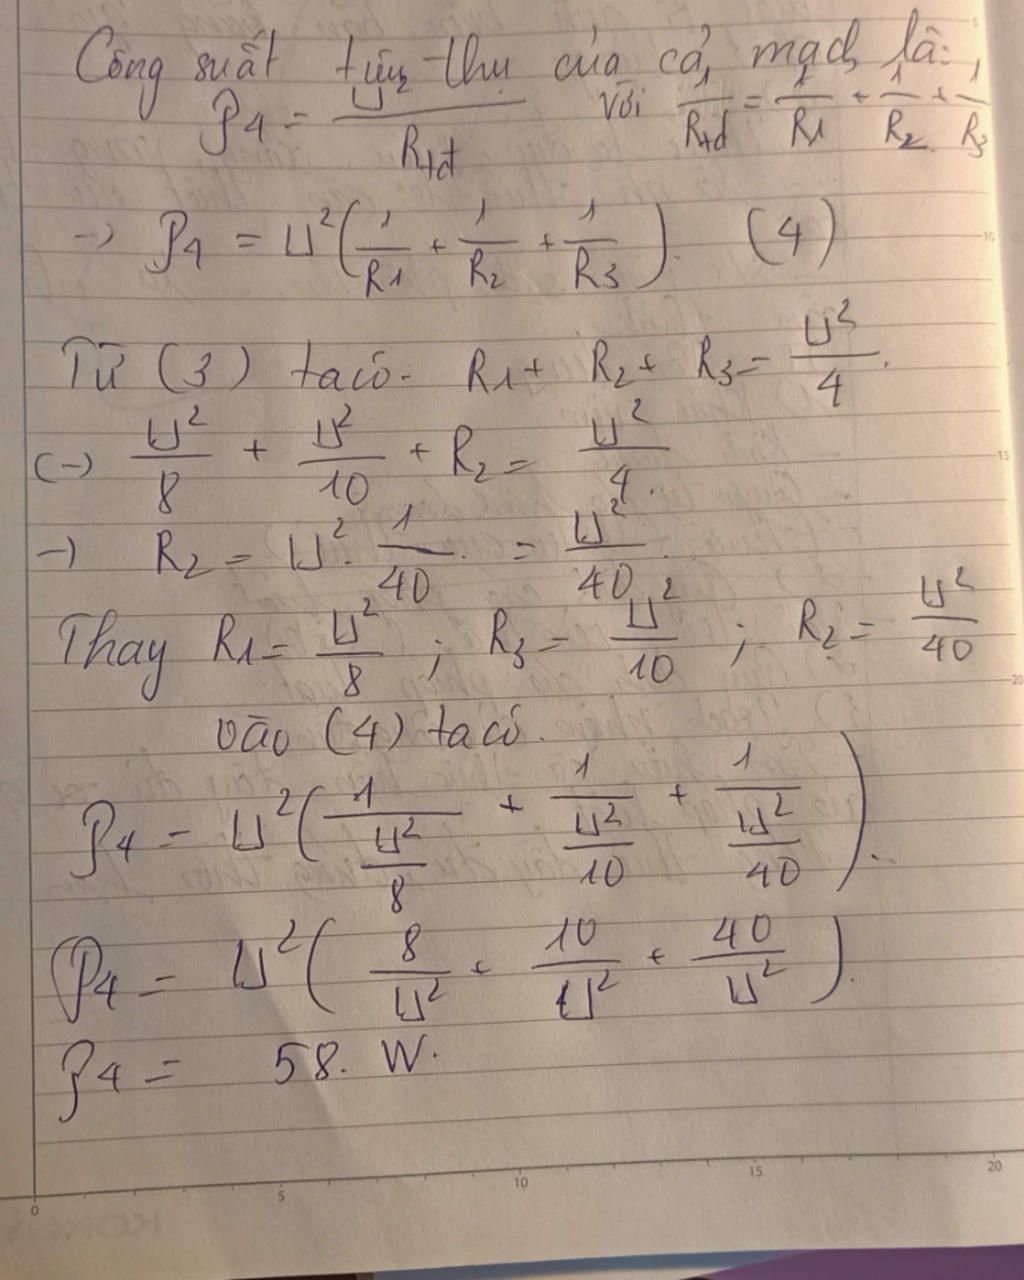 Công suất tiêu thụ của cả mạch là:
P4 = U²/Rtđ với 1/Rtđ = 1/R1 + 1/R2 + 1/R3
-> P4 = U²(1/R1 + 1/R2 + 1/R3). (4)
Từ (3) ta có. R1 + R2 + R3 = U²/4.
(-) U²/8 + U²/10 + R2 = U²/4.
-) R2 = U². 1/40. = U²/40.
Thay R1 = U²/8 ; R3 = U²/10 ; R2 = U²/40
vào (4) ta có.
P4 = U²(1/(U²/8) + 1/(U²/10) + 1/(U²/40)).
P4 = U²(8/U² + 10/U² + 40/U²).
P4 = 58. W.
0 5 10 15 20
5
10
15
20